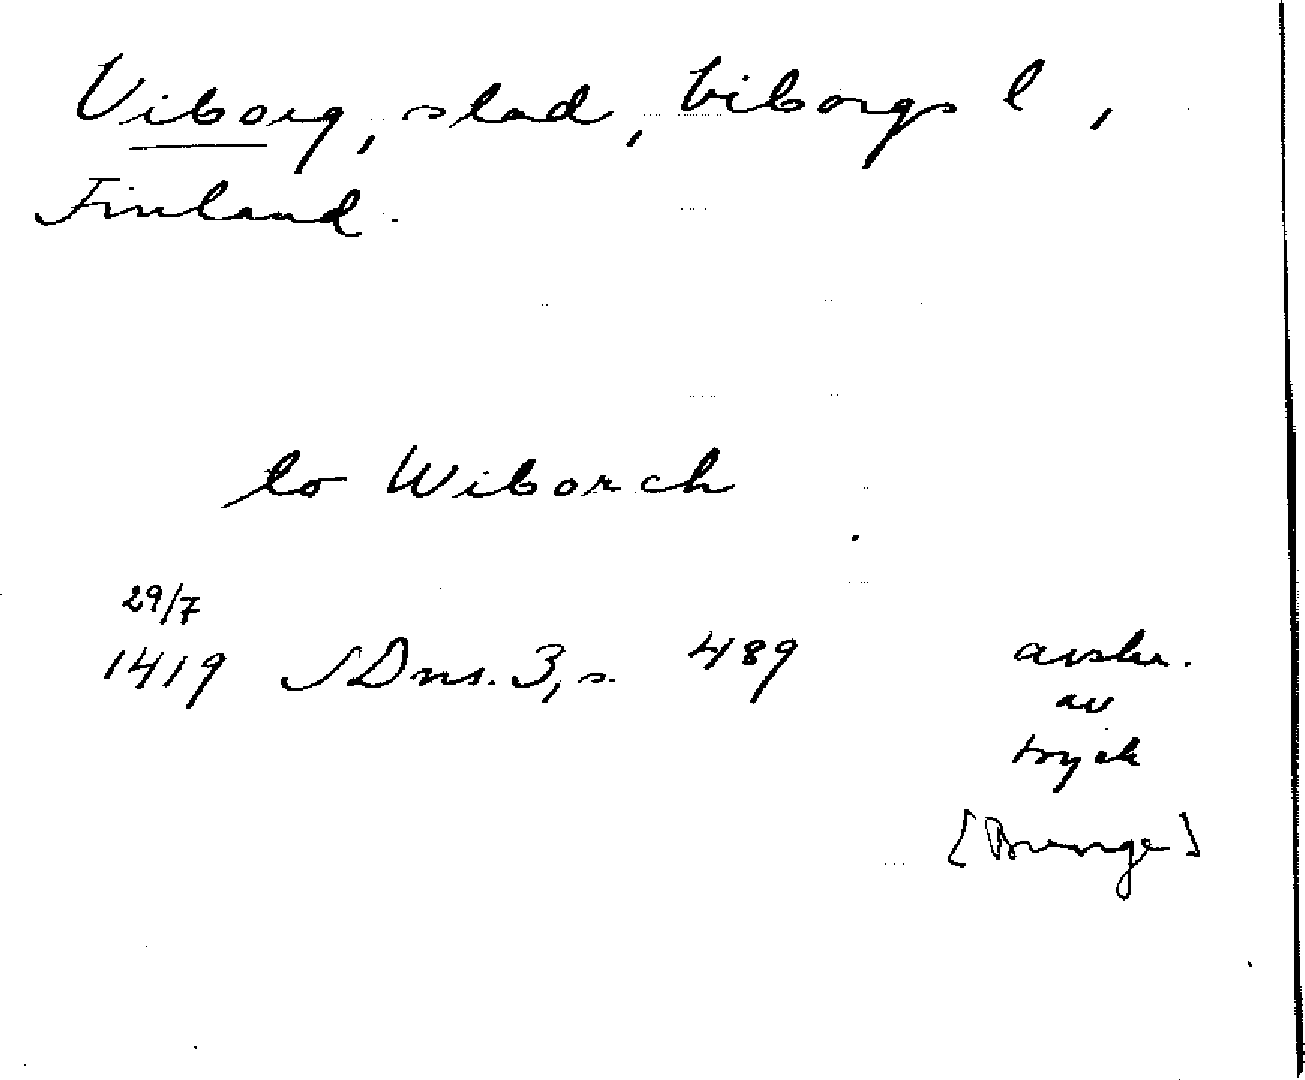 Viborg, stad, Viborgs l,
Finland.
to Wiborch
29/7
1419 SDns. 3, s. 489 avskr.
av
tryck
[Brunge]